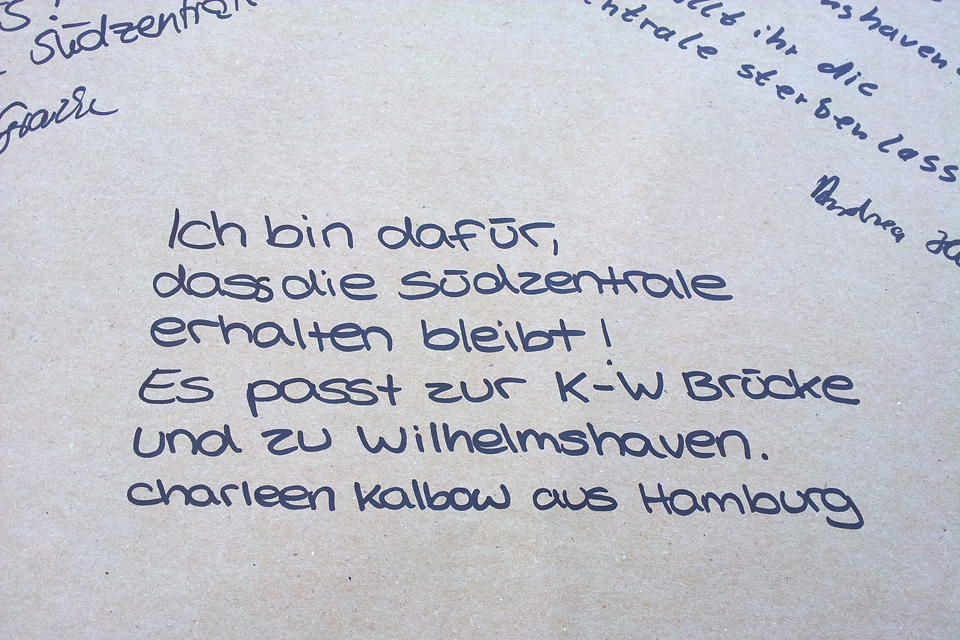 Südzentrale
nshaven
llt ihr die
ntrale sterben lass
Andrea
Ich bin dafür,
dass die Südzentrale
erhalten bleibt!
Es passt zur K-W Brücke
und zu Wilhelmshaven.
Charleen Kalbow aus Hamburg